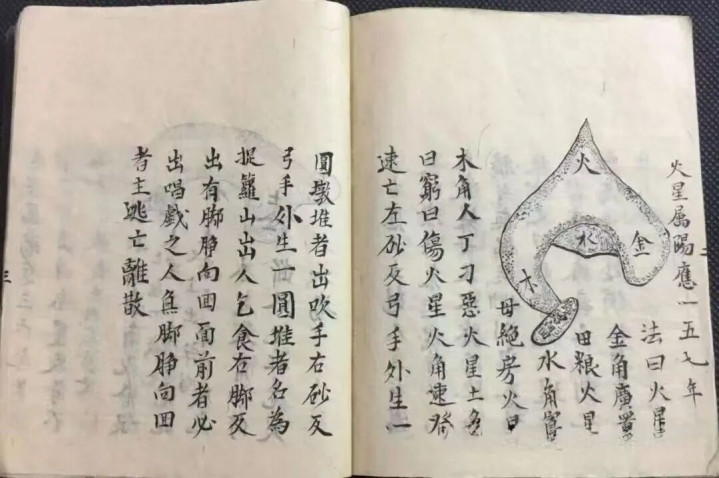 火星属陽應一五七年
法曰火星
金角廣置
田粮火星
水角
母絕房火曰
木角人丁刁惡火星土
曰窮曰傷火星火角速
速亡左砂反弓手外生一
火
金
水
木
二
圓墩堆者出吹手右砂反
弓手外生一圓堆者名為
捉籮山出人乞食右脚反
出有脚睜向回面前者必
出唱戲之人脚睜向回
者主逃亡離散
三